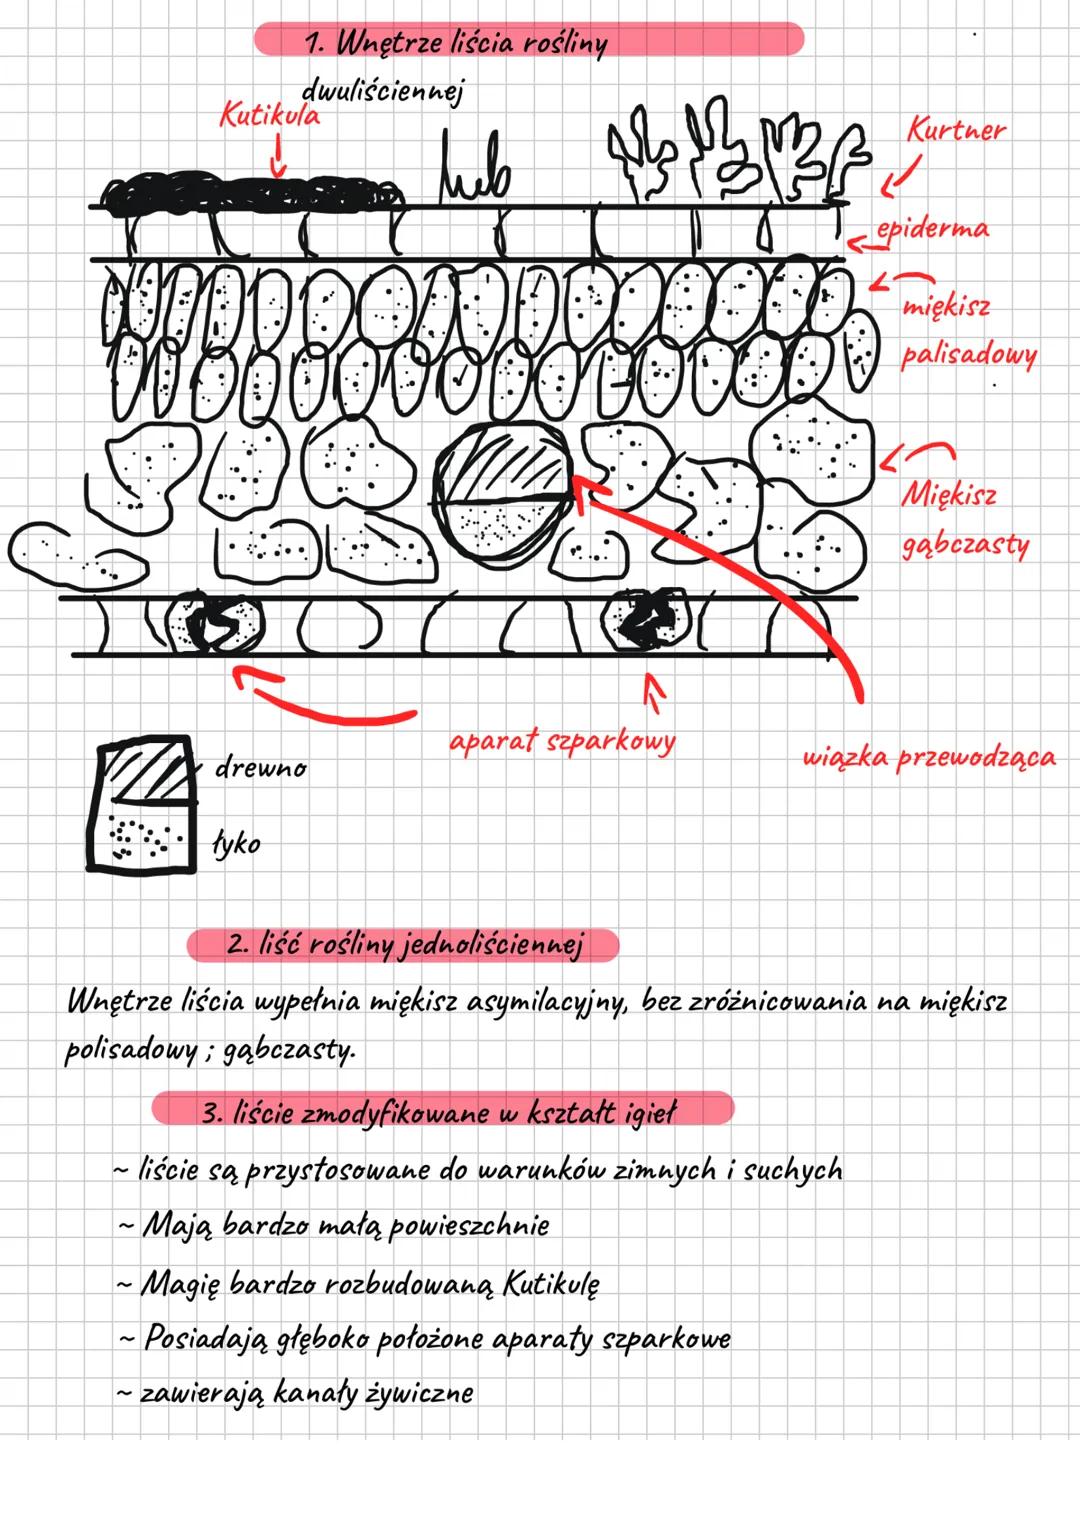 1. Wnętrze liścia rośliny
dwuliściennej
Kutikula
lub
Kurtner
epiderma
miękisz
palisadowy
Miękisz
gąbczasty
aparat szparkowy
wiązka przewodząca
drewno
łyko
2. liść rośliny jednoliściennej
Wnętrze liścia wypełnia miękisz asymilacyjny, bez zróżnicowania na miękisz
polisadowy ; gąbczasty.
3. liście zmodyfikowane w kształt igieł
~ liście są przystosowane do warunków zimnych i suchych
~ Mają bardzo małą powieszchnie
~ Magię bardzo rozbudowaną Kutikulę
~ Posiadają głęboko położone aparaty szparkowe
~ zawierają kanały żywiczne